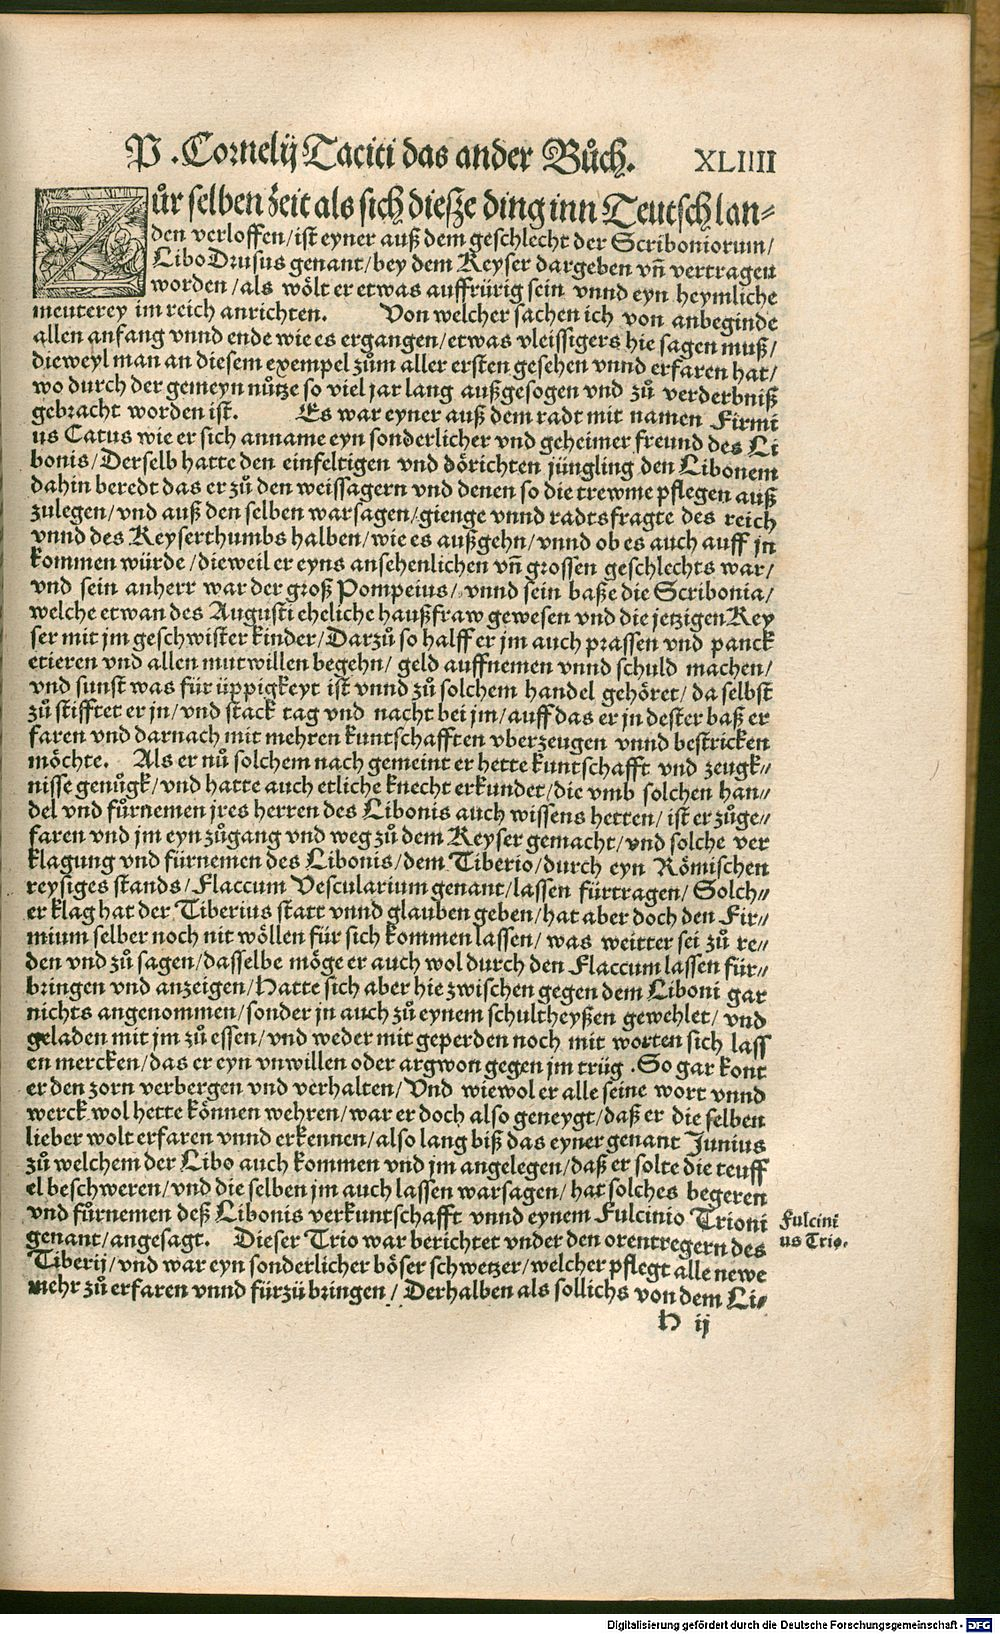 P. Cornelij Taciti das ander Bůch. XLIIII
Zůr selben zeit als sich diesze ding inn Teutschlan-
den verloffen/ist eyner auß dem geschlecht der Scriboniorum/
Libo Drusus genant/bey dem Keyser dargeben vñ vertragen
worden/als wölt er etwas auffrürig sein vnnd eyn heymliche
meuterey im reich anrichten. Von welcher sachen ich von anbeginde
allen anfang vnnd ende wie es ergangen/etwas vleissigers hie sagen muß/
dieweyl man an diesem exempel zům aller ersten gesehen vnnd erfaren hat/
wo durch der gemeyn nůtze so viel jar lang außgesogen vnd zů verderbniß
gebracht worden ist. Es war eyner auß dem radt mit namen Firmi
us Catus wie er sich anname eyn sonderlicher vnd geheimer freund des Li
bonis/Derselb hatte den einfeltigen vnd dörichten jüngling den Libonem
dahin beredt das er zů den weissagern vnd denen so die trewme pflegen auß
zulegen/vnd auß den selben warsagen/gienge vnnd radtsfragte des reich
vnnd des Keyserthumbs halben/wie es außgehn/vnnd ob es auch auff jn
kommen würde/dieweil er eyns ansehenlichen vñ grossen geschlechts war/
vnd sein anherr war der groß Pompeius/vnnd sein baße die Scribonia/
welche etwan des Augusti eheliche haußfraw gewesen vnd die jetzigen Key
ser mit jm geschwister kinder/Darzů so halff er jm auch prassen vnd panck
etieren vnd allen mutwillen begehn/ geld auffnemen vnnd schuld machen/
vnd sunst was für üppigkeyt ist vnnd zů solchem handel gehöret/da selbst
zů stifftet er jn/vnd stack tag vnd nacht bei jm/auff das er jn dester baß er
faren vnd darnach mit mehren kuntschafften vberzeugen vnnd bestricken
möchte. Als er nů solchem nach gemeint er hette kuntschafft vnd zeugk-
nisse genůgk/vnd hatte auch etliche knecht erkundet/die vmb solchen han-
del vnd fůrnemen jres herren des Libonis auch wissens hetten/ ist er zůge-
faren vnd jm eyn zůgang vnd weg zů dem Keyser gemacht/vnd solche ver
klagung vnd fürnemen des Libonis/dem Tiberio/durch eyn Römischen
reysiges stands/Flaccum Vescularium genant/lassen fürtragen/ Solch-
er klag hat der Tiberius statt vnnd glauben geben/hat aber doch den Fir-
mium selber noch nit wöllen für sich kommen lassen/ was weitter sei zů re-
den vnd zů sagen/dasselbe möge er auch wol durch den Flaccum lassen für-
bringen vnd anzeigen/Hatte sich aber hie zwischen gegen dem Liboni gar
nichts angenommen/sonder jn auch zů eynem schultheyßen gewehlet/ vnd
geladen mit jm zů essen/vnd weder mit geperden noch mit worten sich lass
en mercken/das er eyn vnwillen oder argwon gegen jm trüg. So gar kont
er den zorn verbergen vnd verhalten/Vnd wiewol er alle seine wort vnnd
werck wol hette können wehren/war er doch also geneygt/daß er die selben
lieber wolt erfaren vnnd erkennen/also lang biß das eyner genant Junius
zů welchem der Libo auch kommen vnd jm angelegen/daß er solte die teuff
el beschweren/vnd die selben jm auch lassen warsagen/hat solches begeren
vnd fůrnemen deß Libonis verkuntschafft vnnd eynem Fulcinio Trioni
genant/angesagt. Dieser Trio war berichtet vnder den orentregern des
Tiberij/vnd war eyn sonderlicher böser schwetzer/welcher pflegt alle newe
mehr zů erfaren vnnd fürzübringen/ Derhalben als sollichs von dem Li-
Fulcini
us Trio.
H ij
Digitalisierung gefördert durch die Deutsche Forschungsgemeinschaft - DFG